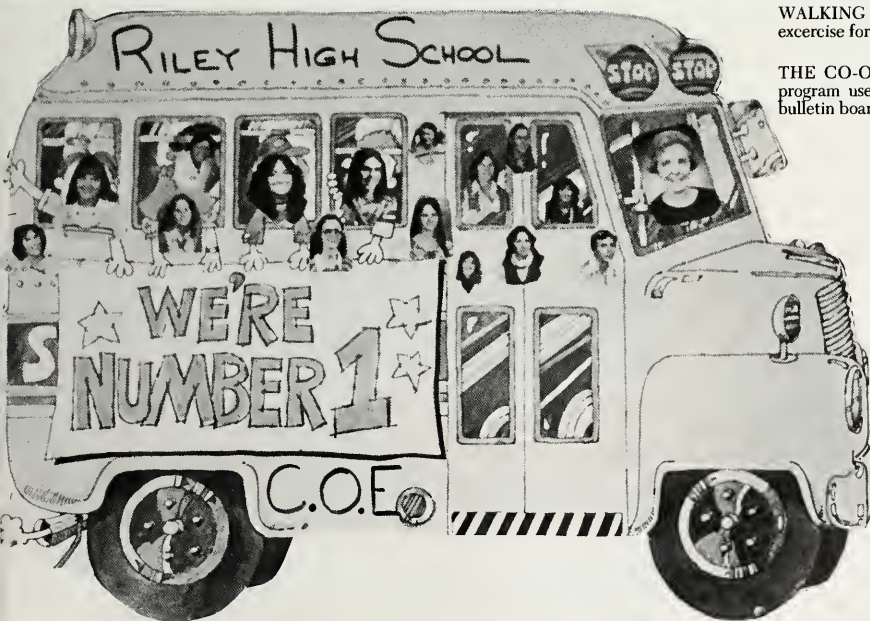 RILEY HIGH SCHOOL
STOP STOP
WE'RE
NUMBER 1
S
C.O.E.
WALKING
excercise for
THE CO-O
program use
bulletin boar